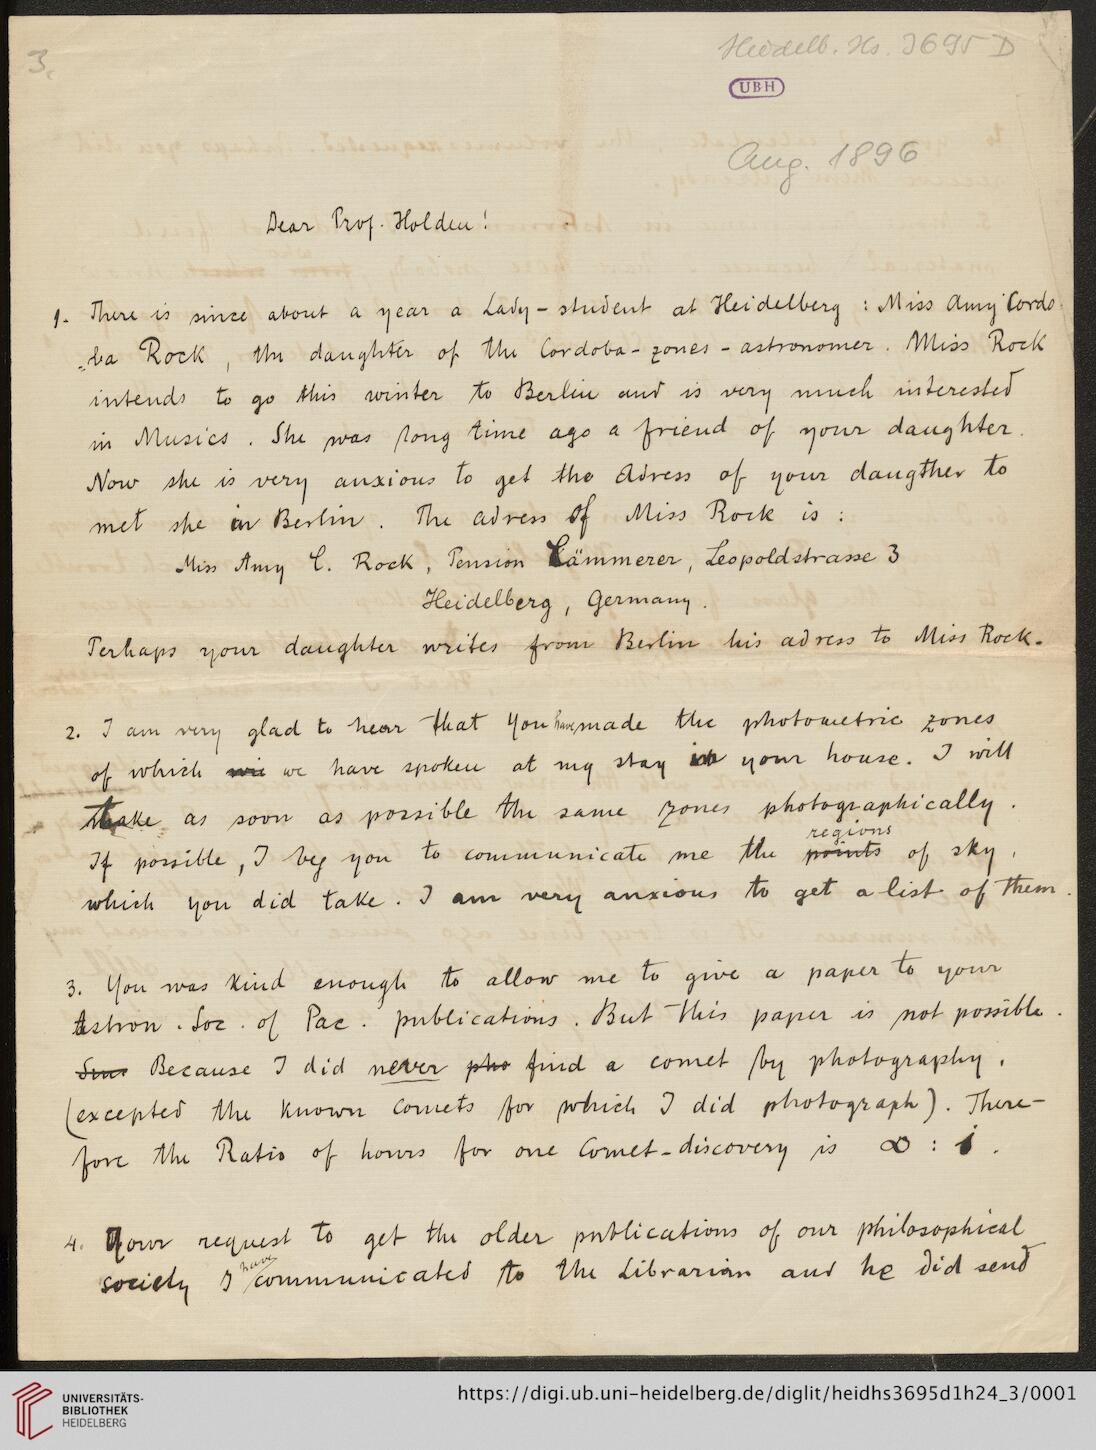 3.
Heidelb. Hs. 3695 D
UBH
Aug. 1896
Dear Prof. Holden!
1. There is since about a year a Lady-student at Heidelberg: Miss Amy Cordo-
ba Rock, the daughter of the Cordoba-zones-astronomer. Miss Rock
intends to go this winter to Berlin and is very much interested
in Musics. She was long time ago a friend of your daughter.
Now she is very anxious to get the Adress of your daugther to
met she in Berlin. The adress of Miss Rock is:
Miss Amy C. Rock, Pension Cämmerer, Leopoldstrasse 3
Heidelberg, Germany.
Perhaps your daughter writes from Berlin his adress to Miss Rock.
2. I am very glad to hear that you have made the photometric zones
of which we have spoken at my stay in your house. I will
take as soon as possible the same zones photographically.
regions
If possible, I beg you to communicate me the points of sky,
which you did take. I am very anxious to get a list of them.
3. You was kind enough to allow me to give a paper to your
Astron. Soc. of Pac. publications. But this paper is not possible.
Because I did never pho find a comet by photography.
(excepted the known comets for which I did photograph). There-
fore the Ratio of hours for one Comet-discovery is ∞ : 1.
4. Your request to get the older publications of our philosophical
have
society I communicated to the Librarian and he did send
UNIVERSITÄTS-
BIBLIOTHEK
HEIDELBERG
https://digi.ub.uni-heidelberg.de/diglit/heidhs3695d1h24_3/0001